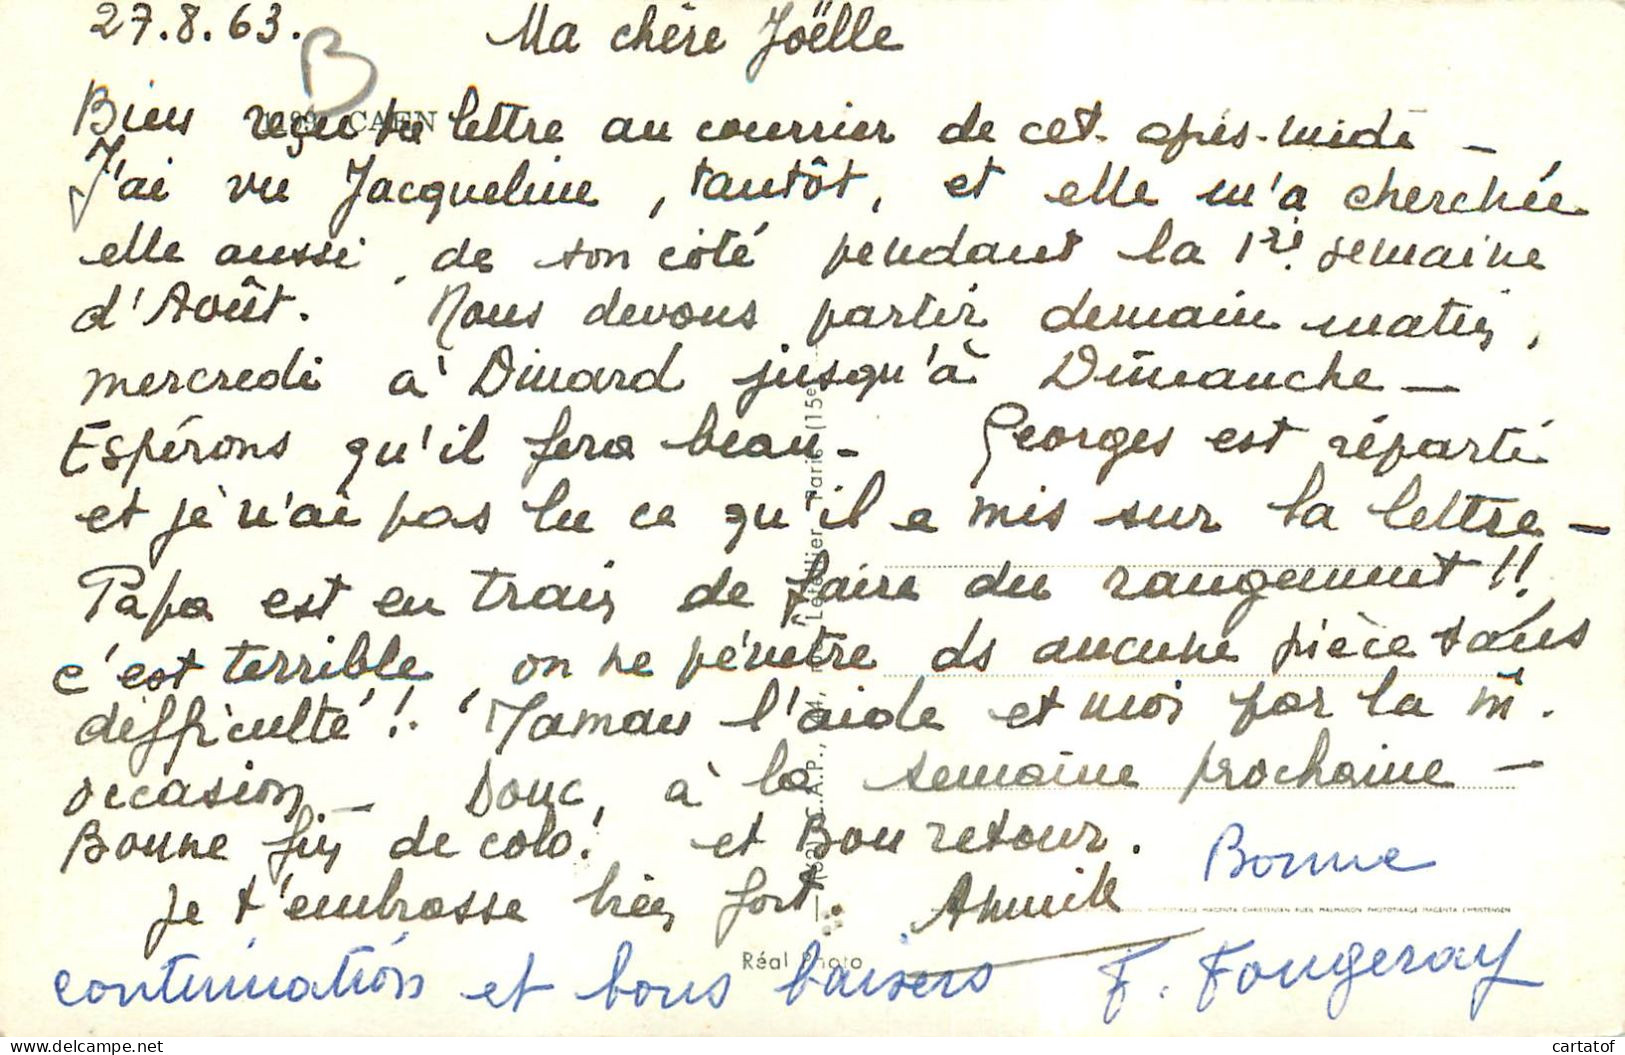 27.8.63. Ma chère Joëlle
B
CAEN
Bien reçu ta lettre au courrier de cet après-midi -
J'ai vu Jacqueline, tantôt, et elle m'a cherchée
elle aussi, de son côté pendant la 1re semaine
d'Août. Nous devons partir demain matin,
mercredi à Dinard jusqu'à Dimanche -
Espérons qu'il fera beau - Georges est réparti
et je n'ai pas lu ce qu'il a mis sur la lettre -
Papa est en train de faire du rangement !!
c'est terrible on ne pénètre ds aucune pièce sans
difficulté ! Maman l'aide et moi par la m̂.
occasion - Donc, à la semaine prochaine -
Bonne fin de colo! et Bon retour.
Je t'embrasse bien fort. Annick
Bonne
continuation et bons baisers F. Fougeray
Réal Photo
C.A.P., Paris (15e)
cartatof
www.delcampe.net